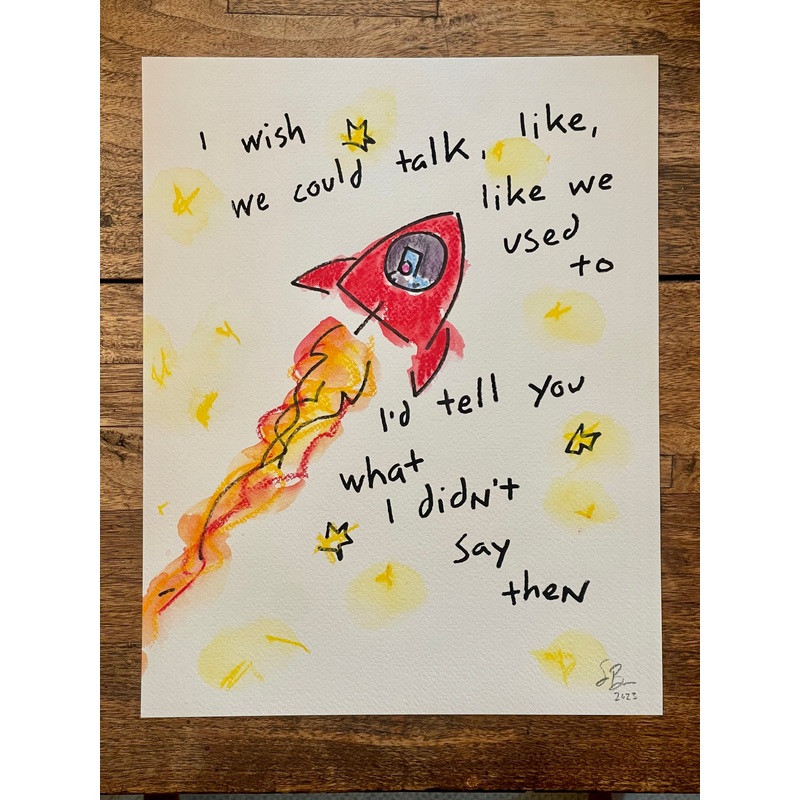 I wish
we could talk, like,
like we
used
to
I'd tell you
what
I didn't
say
then
2023